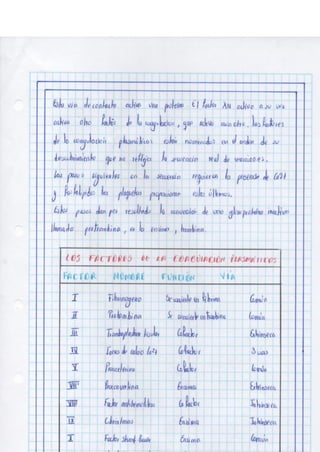 Esta vía de contacto activa una proteína el factor XII activa a su vez
activa otro factor de la coagulación, que activa otro, los factores
de la coagulación plasmáticos están nombrados en el orden de su
descubrimiento que no refleja la secuencia real de reacciones.
Los pasos siguientes en la secuencia requieren la presencia de Ca2+
y fosfolípidos las plaquetas proporcionan estos últimos.
Estos pasos dan por resultado la conversión de una glucoproteína inactiva
llamada protrombina, a la enzima, trombina.
LOS FACTORES DE LA COAGULACION PLASMATICOS
FACTOR NOMBRE FUNCIÓN VIA
I Fibrinogeno Se convierte en fibrina Común
II Protrombina Se convierte en trombina Común
III Tromboplastina tisular Cofactor Extrínseca
IV Iones de calcio Ca2+ Cofactor 3 vias
V Proacelerina Cofactor Común
VII Proconvertina Enzima Extrínseca
VIII Factor antihemofilico Cofactor Intrínseca
IX Christmas Enzima Intrínseca
X Factor Stuart-Power Enzima Común